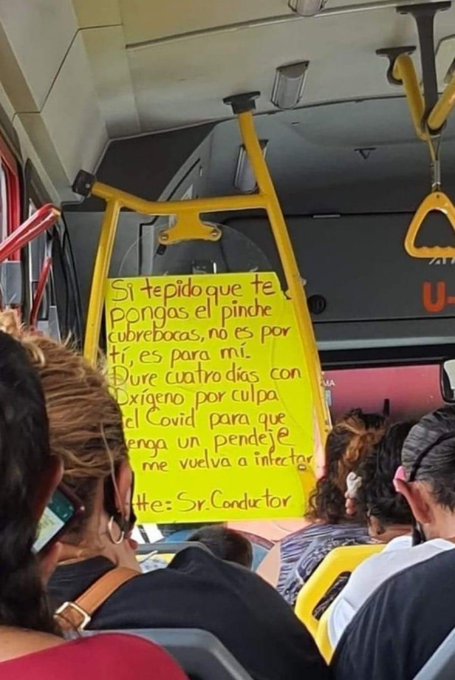 Si tepido que te
pongas el pinche
cubrebocas, no es por
tí, es para mí.
Dure cuatro días con
Oxígeno por culpa
el Covid para que
enga un pendej@
me vuelva a infectar
tte: Sr. Conductor
U-
MA